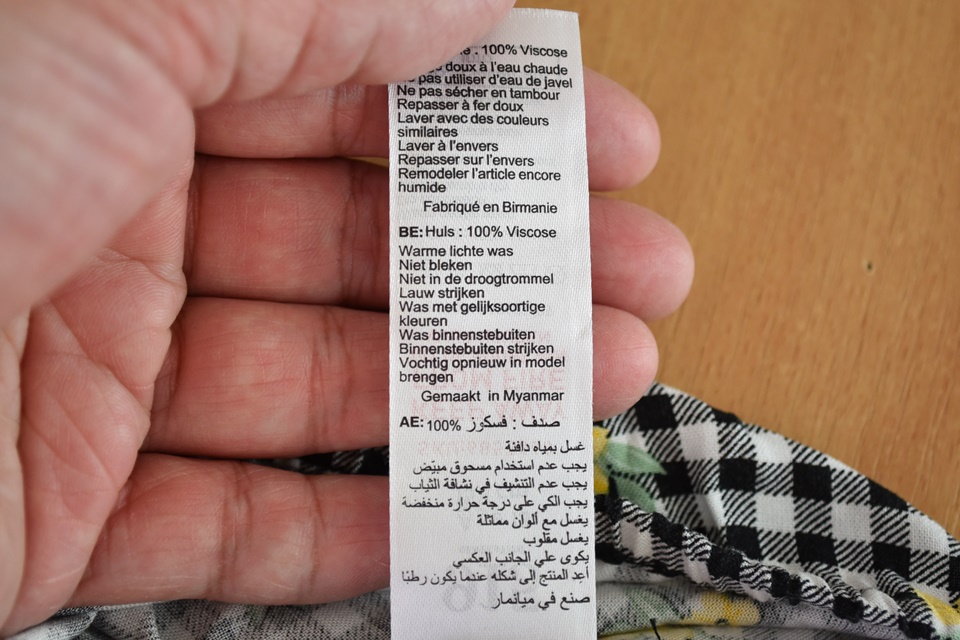 : 100% Viscose
doux à l'eau chaude
pas utiliser d'eau de javel
Ne pas sécher en tambour
Repasser à fer doux
Laver avec des couleurs
similaires
Laver à l'envers
Repasser sur l'envers
Remodeler l'article encore
humide
Fabriqué en Birmanie
BE: Huls : 100% Viscose
Warme lichte was
Niet bleken
Niet in de droogtrommel
Lauw strijken
Was met gelijksoortige
kleuren
Was binnenstebuiten
Binnenstebuiten strijken
Vochtig opnieuw in model
brengen
Gemaakt in Myanmar
AE: 100% صدف : فسكوز
غسل بمياه دافئة
يجب عدم استخدام مسحوق مبيّض
يجب عدم التنشيف في نشافة الثياب
يجب الكي على درجة حرارة منخفضة
يغسل مع ألوان مماثلة
يغسل مقلوب
يكوى علي الجانب العكسي
أعد المنتج إلى شكله عندما يكون رطبًا
صنع في ميانمار